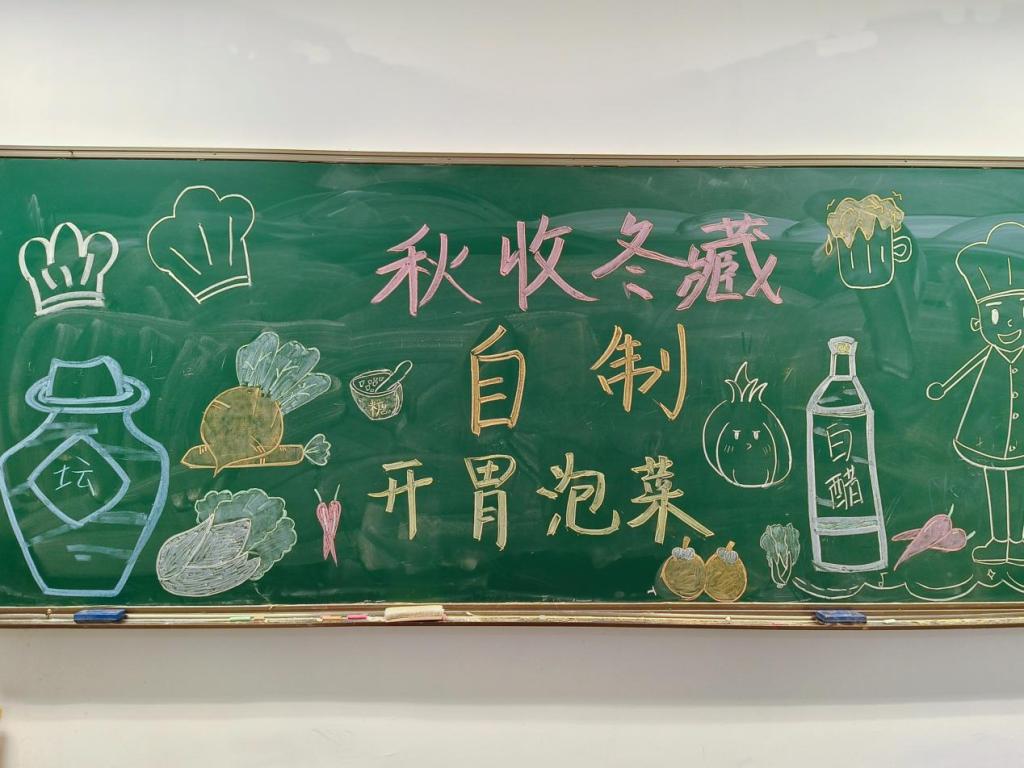 秋收冬藏
自制
开胃泡菜
坛
糖
白醋